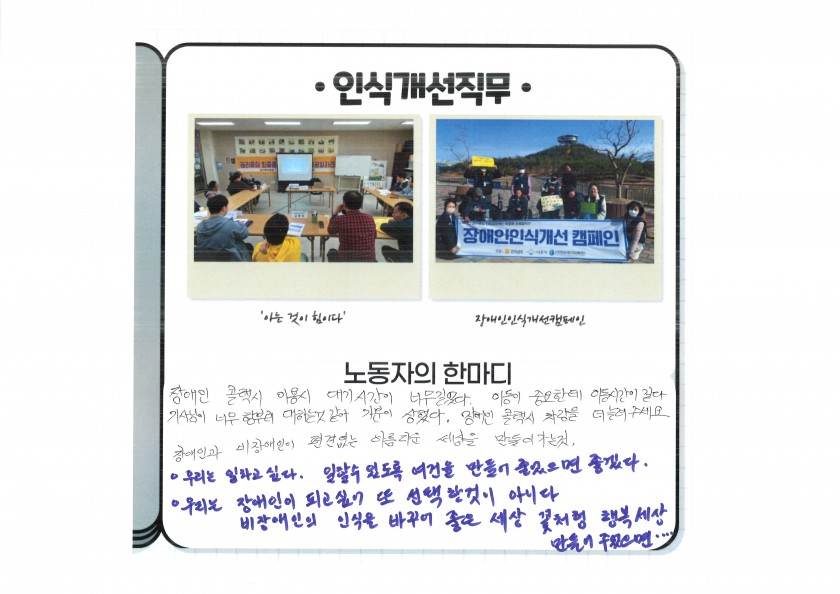 • 인식개선직무 •
장애인인식개선 캠페인
'아는 것이 힘이다'
장애인인식개선캠페인
노동자의 한마디
장애인 콜택시 이용시 대기시간이 너무길었다. 이동이 중요한데 이동시간이 길다
기사님이 너무 함부러 대하는것 같아 기분이 상했다. 장애인 콜택시 차량을 더 늘려주세요
장애인과 비장애인이 편견없는 아름다운 세상을 만들어가는것.
• 우리는 일하고 싶다. 일할수 있도록 여건을 만들어 줬으면 좋겠다.
• 우리는 장애인이 되고싶어 또 선택한것이 아니다
비장애인의 인식을 바꾸어 좋은 세상 꽃처럼 행복세상
만들어 주었으면....